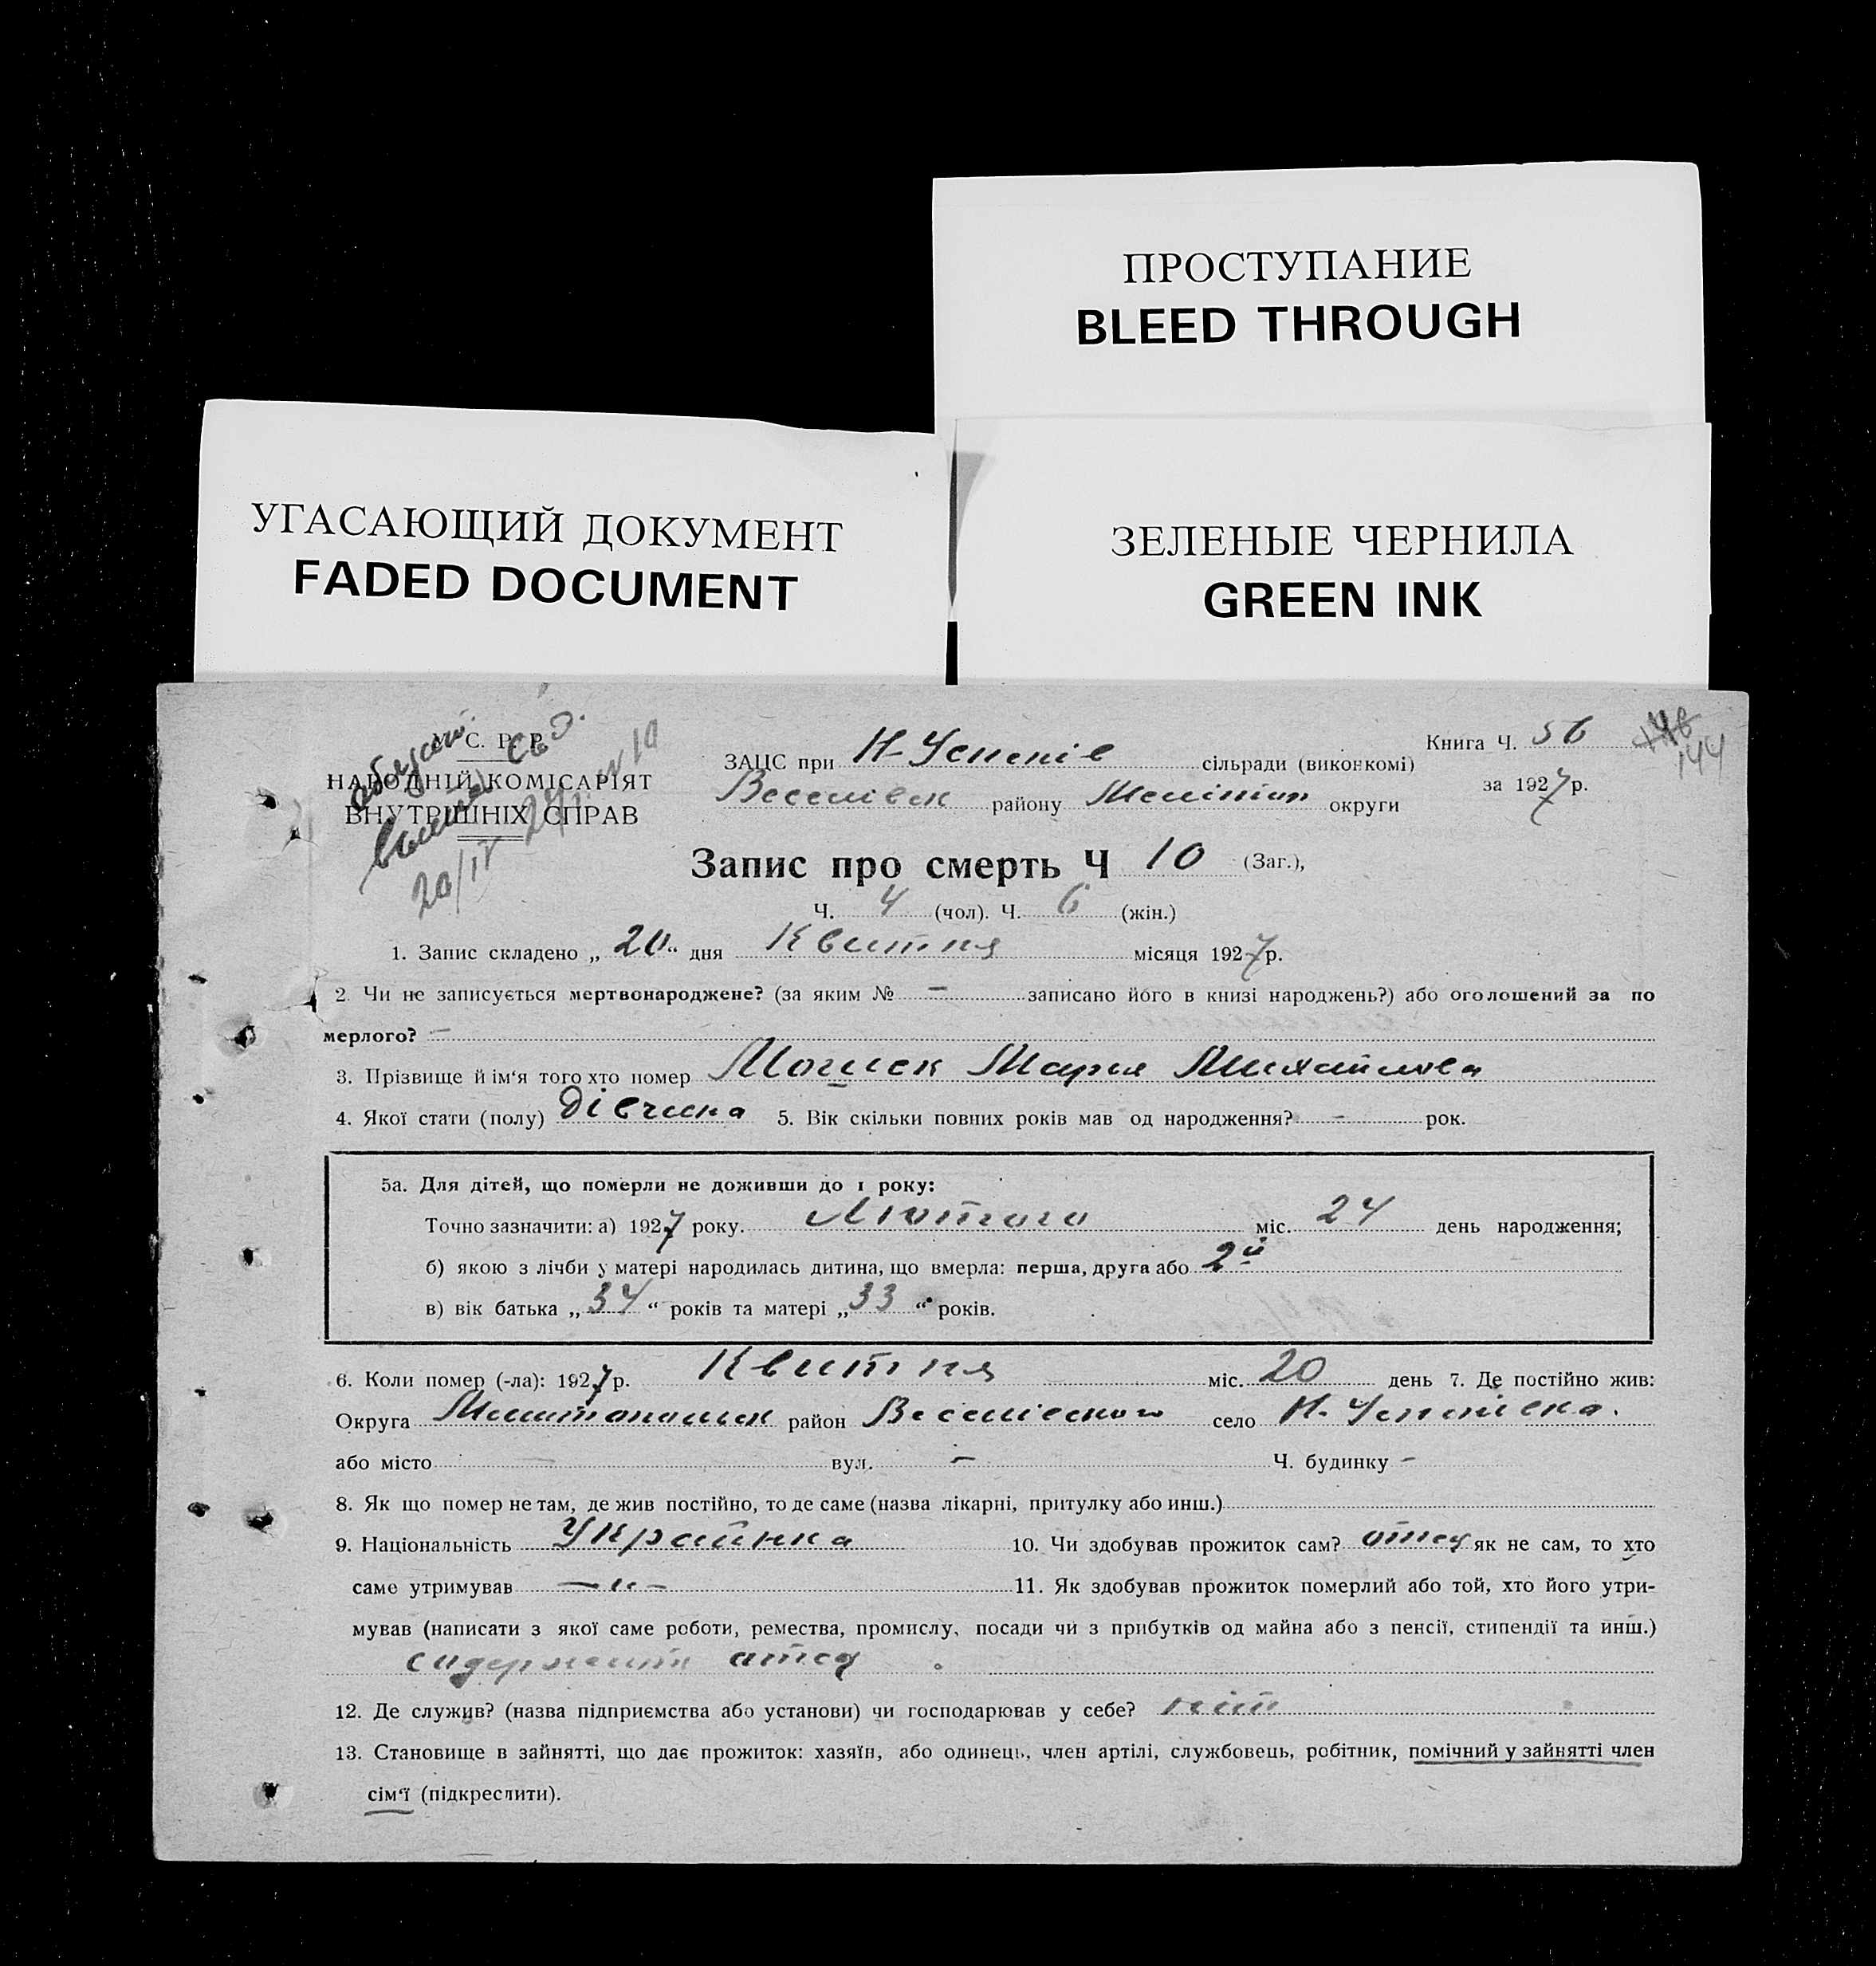 ПРОСТУПАНИЕ
BLEED THROUGH
УГАСАЮЩИЙ ДОКУМЕНТ
FADED DOCUMENT
ЗЕЛЕНЫЕ ЧЕРНИЛА
GREEN INK
У. С. Р. Р.
НАРОДНІЙ КОМІСАРІЯТ
ВНУТРІШНІХ СПРАВ
20/IV 27 г. № 10
144
Книга Ч. 56
за 1927 р.
ЗАЦС при Н-Успенів сільради (виконкомі)
Веселівськ району Мелітоп округи
Запис про смерть Ч 10 (Заг.),
Ч. 4 (чол). Ч. 6 (жін.)
1. Запис складено „ 20 “ дня Квитня місяця 1927 р.
2. Чи не записується мертвонароджене? (за яким № – записано його в книзі народжень?) або оголошений за по
мерлого? –
3. Прізвище й ім‘я того хто помер Мария Михайлова
4. Якої стати (полу) дівчина 5. Вік скільки повних років мав од народження? – рок.
5а. Для дітей, що померли не доживши до 1 року:
Точно зазначити: а) 1927 року. Лютого міс. 24 день народження;
б) якою з лічби у матері народилась дитина, що вмерла: перша, друга або 2й
в) вік батька „ 34 “ років та матері „ 33 “ років.
6. Коли помер (-ла): 1927 р. Квитня міс. 20 день 7. Де постійно жив:
Округа Мелитопольск район Веселівского село Н-Успенівка.
або місто – вул. – Ч. будинку –
8. Як що помер не там, де жив постійно, то де саме (назва лікарні, притулку або инш.)
9. Національність Українка 10. Чи здобував прожиток сам? отец як не сам, то хто
саме утримував –„– 11. Як здобував прожиток померлий або той, хто його утри-
мував (написати з якої саме роботи, ремества, промислу, посади чи з прибутків од майна або з пенсії, стипендії та инш.)
содержит отец
12. Де служив? (назва підприємства або установи) чи господарював у себе? ніт
13. Становище в зайнятті, що дає прожиток: хазяїн, або одинець, член артілі, службовець, робітник, помічний у зайнятті член
сім‘ї (підкреслити).